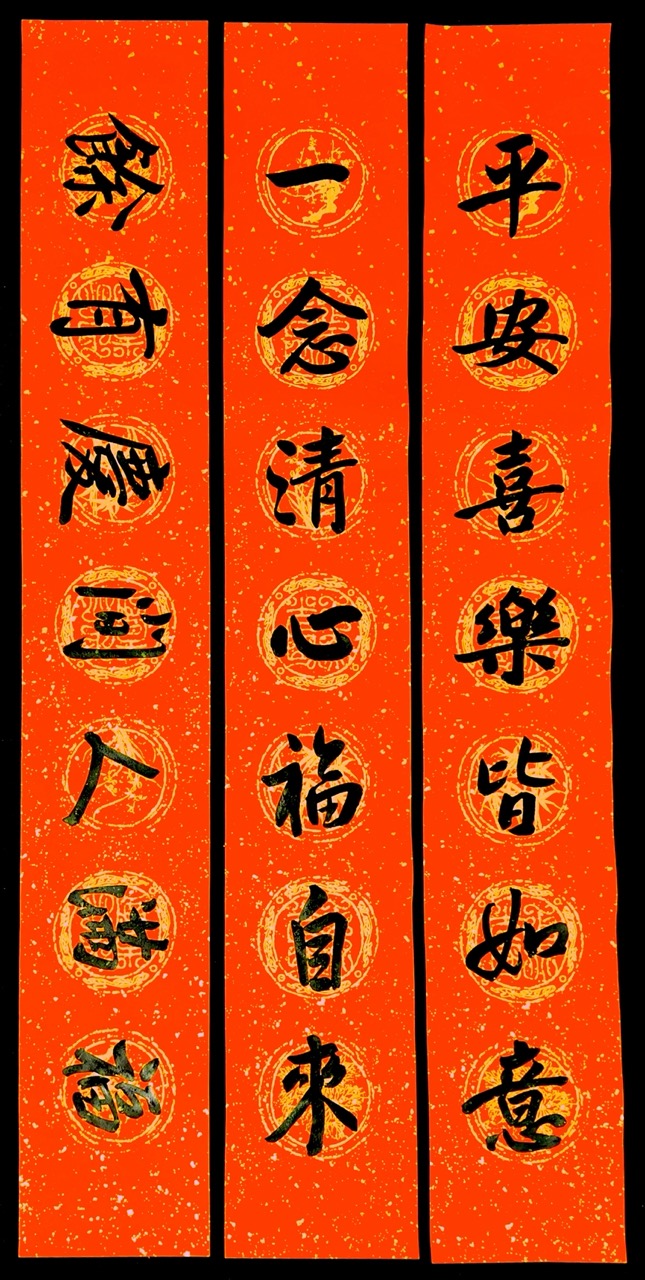 平安喜樂皆如意
一念清心福自來
福滿人間慶有餘